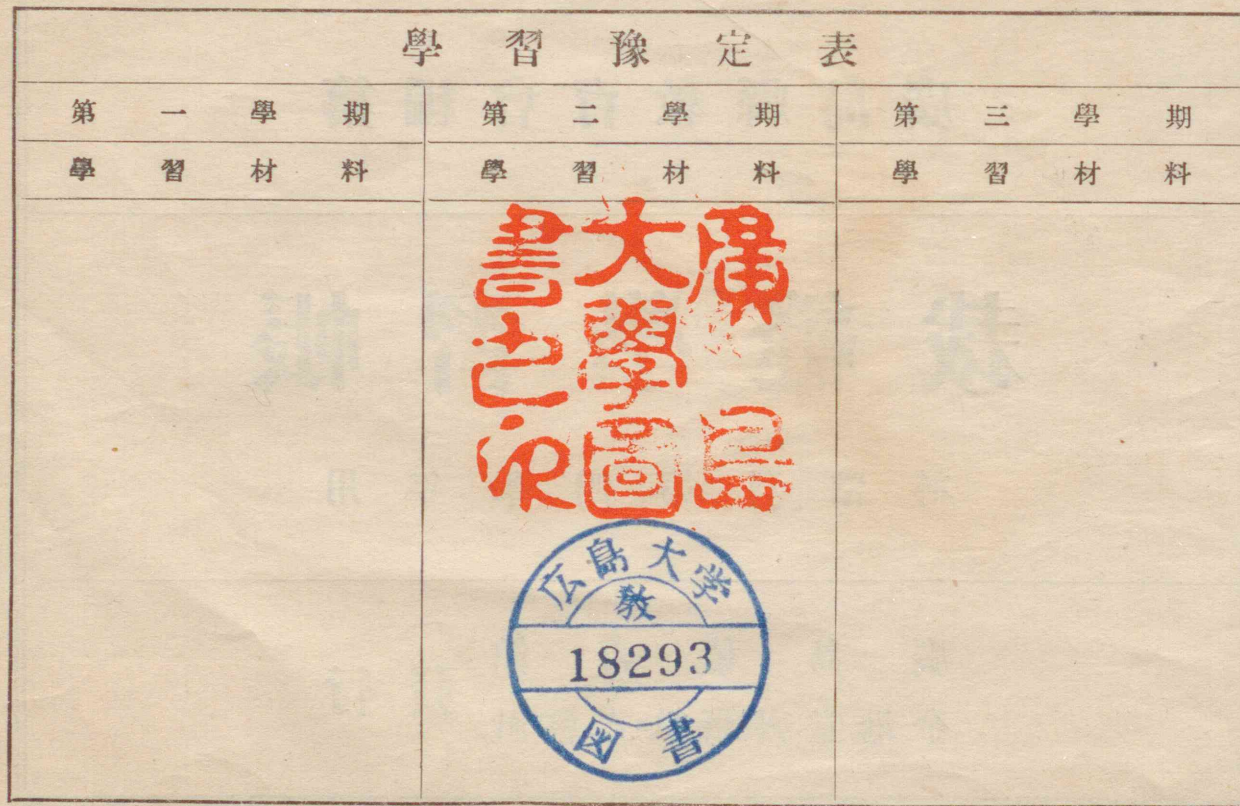 學習豫定表
第一學期 第二學期 第三學期
學習材料 學習材料 學習材料
廣島
大學圖
書之印
広島大学
教
18293
図書